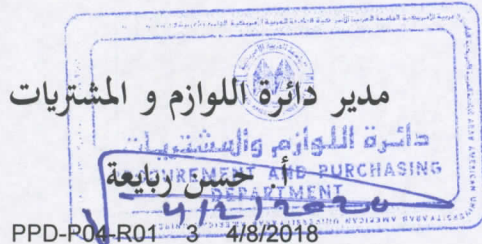 مدير دائرة اللوازم و المشتريات
دائرة اللوازم والمشتريات
أ. حسن ربايعة
PROCUREMENT AND PURCHASING
DEPARTMENT
4/2/2020
PPD-P04-R01 3 4/8/2018